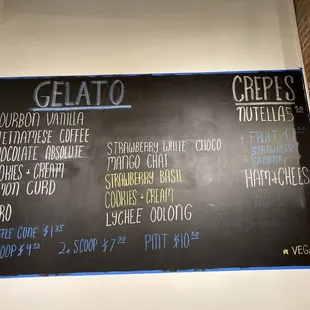 GELATO
OURBON VANILLA
IETNAMESE COFFEE
HOCOLATE ABSOLUTE
OKIES + CREAM
MON CURD
STRAWBERRY WHITE CHOCO
MANGO CHAI
STRAWBERRY BASIL
COOKIES + CREAM
LYCHEE OOLONG
FLE CONE $1.25
2x SCOOP $7.00
PINT $10.50
CREPES
NUTELLA
+ FRUIT $1
STRAWBERRY
BANANA
HAM + CHEES
VEGA